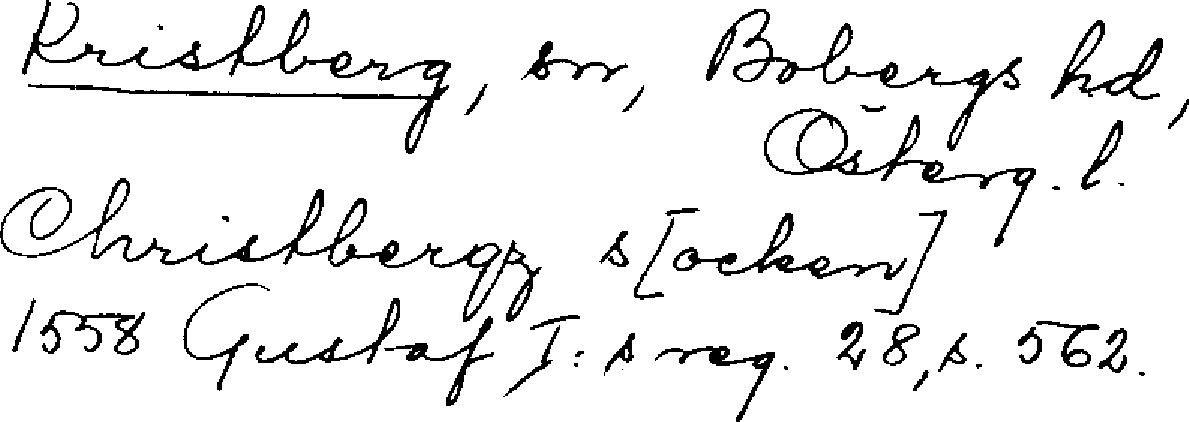 Kristberg, sn, Bobergs hd,
Österg. l.
Christbergz s[ocken]
1558 Gustaf I:s reg. 28, s. 562.